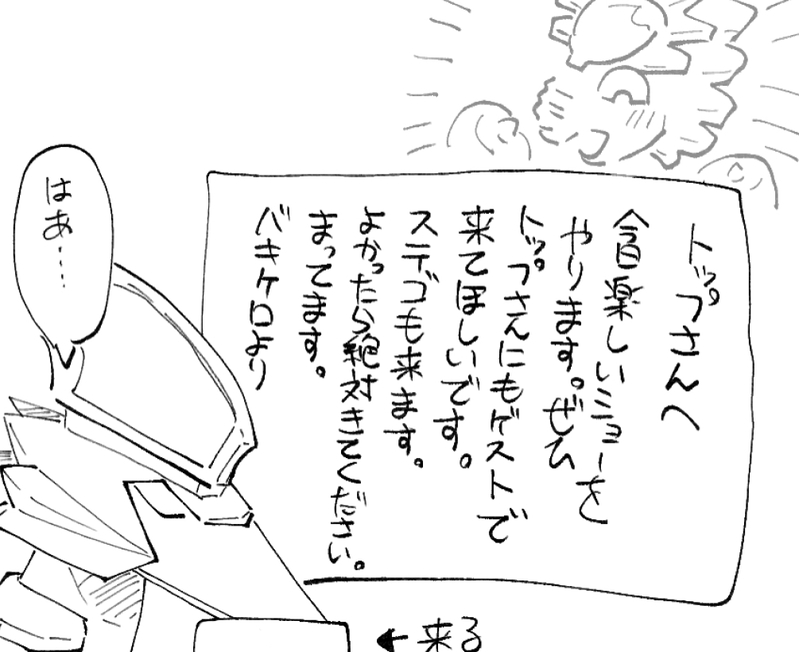 トップさんへ
今日楽しいショーを
やります。ぜひ
トップさんにもゲストで
来てほしいです。
ステゴも来ます。
よかったら絶対きてください。
まってます。
バキケロより
はあ……
←来る